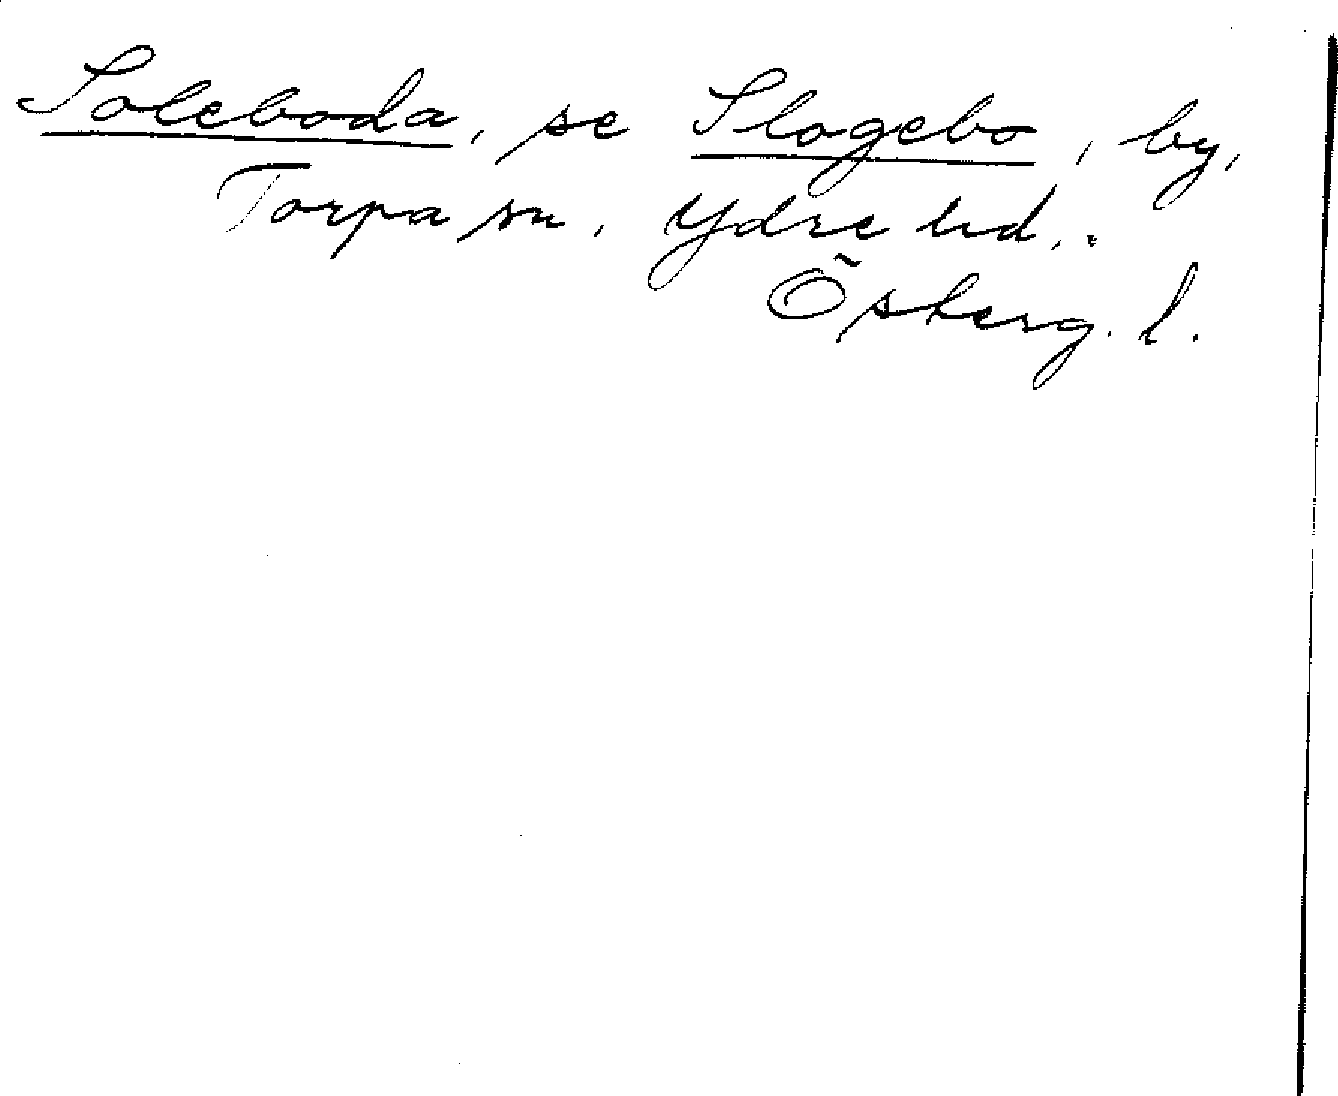 Soleboda, se Slogebo, by,
Torpa sn, Ydre hd,.
Österg. l.